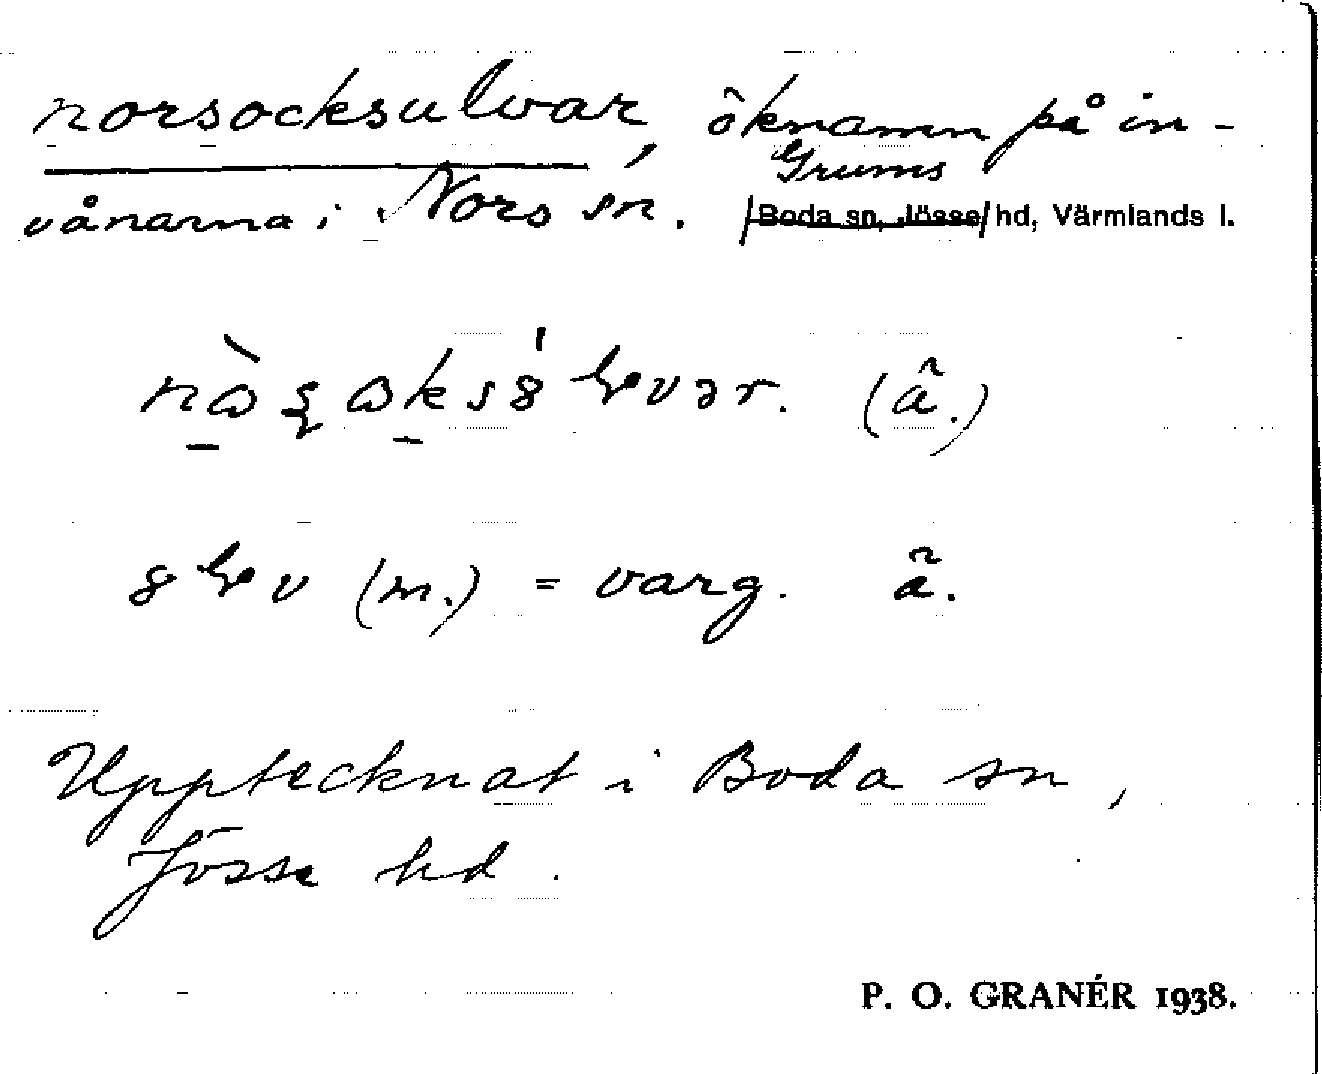 norsocksulvar, öknamn på in-
vånarna i Nors sn. Grums /Boda sn, Jösse/ hd, Värmlands l.
(ä.)
(m.) = varg. ä.
Upptecknat i Boda sn,
Jösse hd.
P. O. GRANÉR 1938.